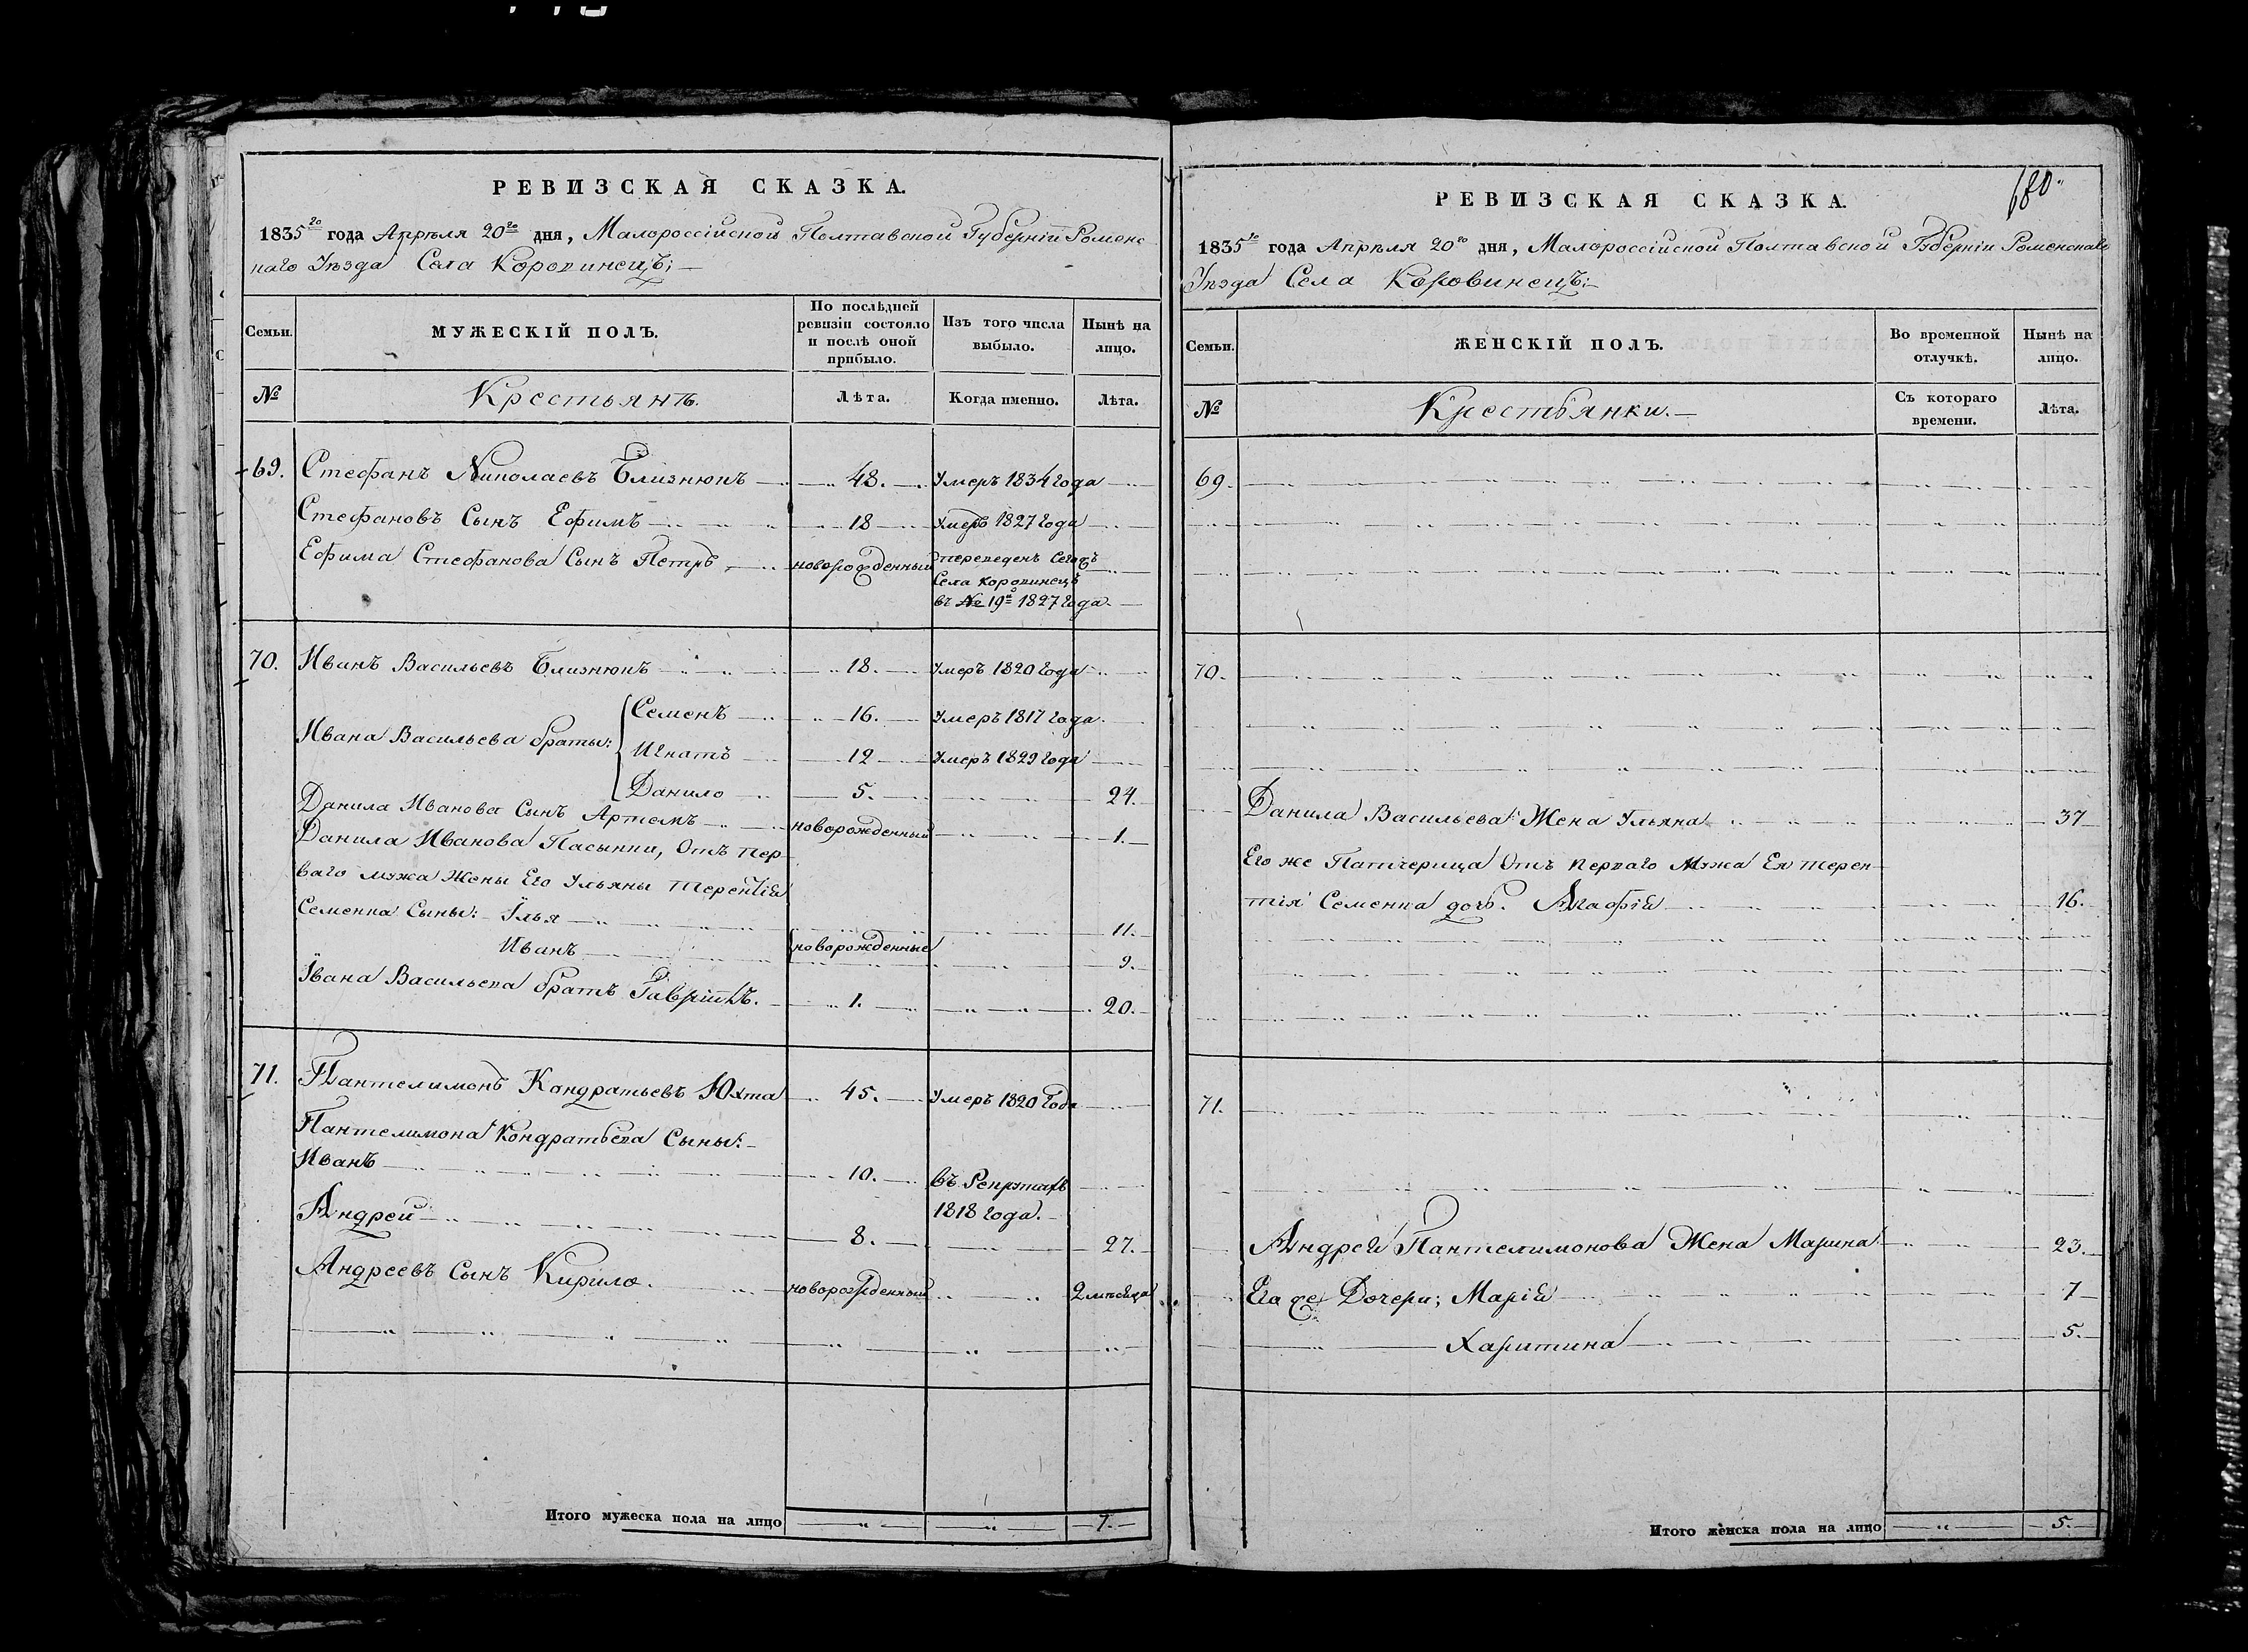 РЕВИЗСКАЯ СКАЗКА.
1835го года Апрѣля 20го дня, Малороссійской Полтавской Губерніи Роменс
каго Уѣзда Села Коровинецъ;
Семьи.
МУЖЕСКІЙ ПОЛЪ.
По послѣдней ревизіи состояло и послѣ оной прибыло.
Изъ того числа выбыло.
Нынѣ на лицо.
№
Крестьянъ.
Лѣта.
Когда именно.
Лѣта.
69. Стефанъ Николаевъ Близнюкъ 48. Умеръ 1834 года
Стефановъ Сынъ Ефимъ 18 Умеръ 1827 года
Ефима Стефанова Сынъ Петръ новорожденный переведенъ Сегожъ
Села Коровинецъ
въ № 19й 1827 года.
70. Иванъ Васильевъ Близнюкъ 18. Умеръ 1820 года
Семенъ 16. Умеръ 1817 года.
Ивана Васильева браты: Игнатъ 12 Умеръ 1829 года
Данило 5. 24.
Данила Иванова Сынъ Артемъ новорожденный 1.
Данила Иванова Пасынки, Отъ пер
ваго мужа Жены Его Ульяны Терентія
Семенка Сыны: Илья 11.
Иванъ новорожденные 9.
Ивана Васильева братъ Гавріилъ. 1. 20.
71. Пантелимонъ Кондратьевъ Юхта 45. Умеръ 1820 Года
Пантелимона Кондратьева Сыны:
Иванъ 10. въ Рекрутахъ
1818 года.
Андрей 8. 27.
Андреевъ Сынъ Кирило. новорожденный 2 мѣсяца
Итого мужеска пола на лицо 7.
680
РЕВИЗСКАЯ СКАЗКА.
1835го года Апрѣля 20го дня, Малороссійской Полтавской Губерніи Роменскаго
Уѣзда Села Коровинецъ:
Семьи.
ЖЕНСКІЙ ПОЛЪ.
Во временной отлучкѣ.
Нынѣ на лицо.
№
Крестьянки.
Съ котораго времени.
Лѣта.
69.
70.
Данила Васильева Жена Ульяна 37
Его же Патчерица Отъ перваго Мужа Ея Терен
тія Семенка дочь. Агафія 16.
71.
Андрея Пантелимонова Жена Марина 23.
Его же Дочери; Марія 7
Харитина 5.
Итого женска пола на лицо 5.